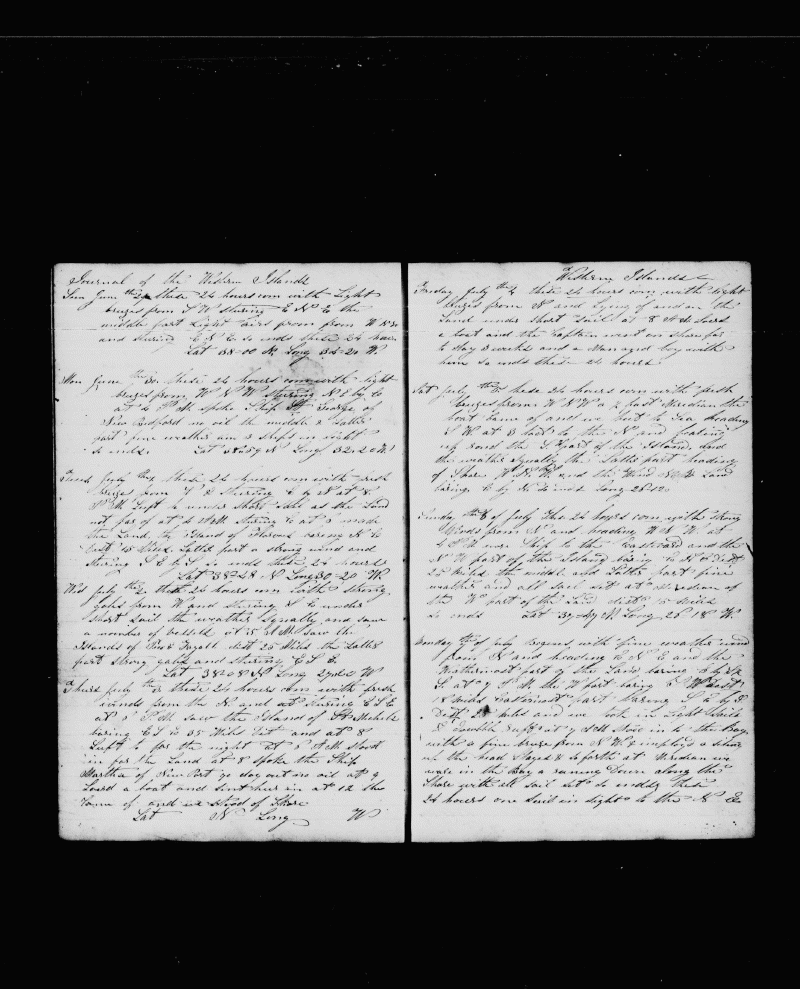 Journal of the Western Islands
Sun June these 24 hours com with Light
brezes from S W Stering E N E the
middle part Light airs from from W
and stering E N E so ends these 24 hours
Lat 38-00 N. Long 34-20 W.
Mon June 30 these 24 hours com with light
brezes from W N W stering N E by E
at 4 P M spoke Ship St George of
New Bedford no oil the middle & Latter
part fine weather and 3 ships in sight
So ends. Lat 38-59 N Long 32-20 W
Tuesd July these 24 hours com with fresh
brezes from S stering E by N at 8
P M Luft to under short sail as the Land
not far of at 4 A M stering E at made
the Land the Island of Flores baring N E
Dist 15 Miles Latter part a strong wind and
stering S E by E so ends these 24 hours
Lat 38-28 N Long 30-20 W.
Wed July 2 these 24 hours com with strong
gales from W and stering under
short sail the weather squally and saw
a number of vessels at 5 A M saw the
Islands of Pico & Fayall dist 25 Miles the Latter
part strong gales and stering E S E.
Lat 38-08 N Long W
Thurs July 3 these 24 hours com with fresh
winds from the N and at stering E S E
at P M saw the Island of St Michels
baring E S E 35 Miles Dist and at 8
Luft to for the night at A M stood
in for the Land at 8 spoke the Ship
Martha of New Port 70 days out no oil at 9
Lowd a boat and sent her in at 12 the
Town of and we stood of Shore
Lat N Long W
Western Islands
Friday July 4 these 24 hours com with light
brezes from N and Lying of and on the
Land under short sail at 8 A M Lowd
a boat and the Captain went on shore for
to stay 3 weeks and a man and boy with
him so ends these 24 hours
Sat July 5 these 24 hours com with fresh
brezes from W N W at 2 past Meridian the
boat came of and we put to Sea heading
S W at 3 tact to the N and
the part of the Island and
the weather squally the Latter part heading
of Shore W. N. W. and the Wind Land
baring E by N. So ends Long 26-12
Sunday 6 of July The 24 hours com with strong
winds from N and heading W N W at
P M wore Ship to the Eastward and the
N W part of the Island baring Dist
25 Miles the middle and Latter part fine
weather and all sail set at Meridian
the W part of the Land dist 15 Miles
So ends Lat N. Long 26-18 W.
Monday 7 of July begins with fine weather wind
from N and heading E N E and the
Westernmost part of the Land baring
S. at P. M. the W part baring W Dist
18 Miles Easternmost part baring
Dist Miles and we took in Light Sails
& double reeft at 7 A M stood in to the Bay
with a fine breeze from N W & employd
up the head Stayed & so forth at Meridian we
ware in the Bay a runing Down along the
Shore with all sail set So ends these
24 hours one Sail in sight to the N E